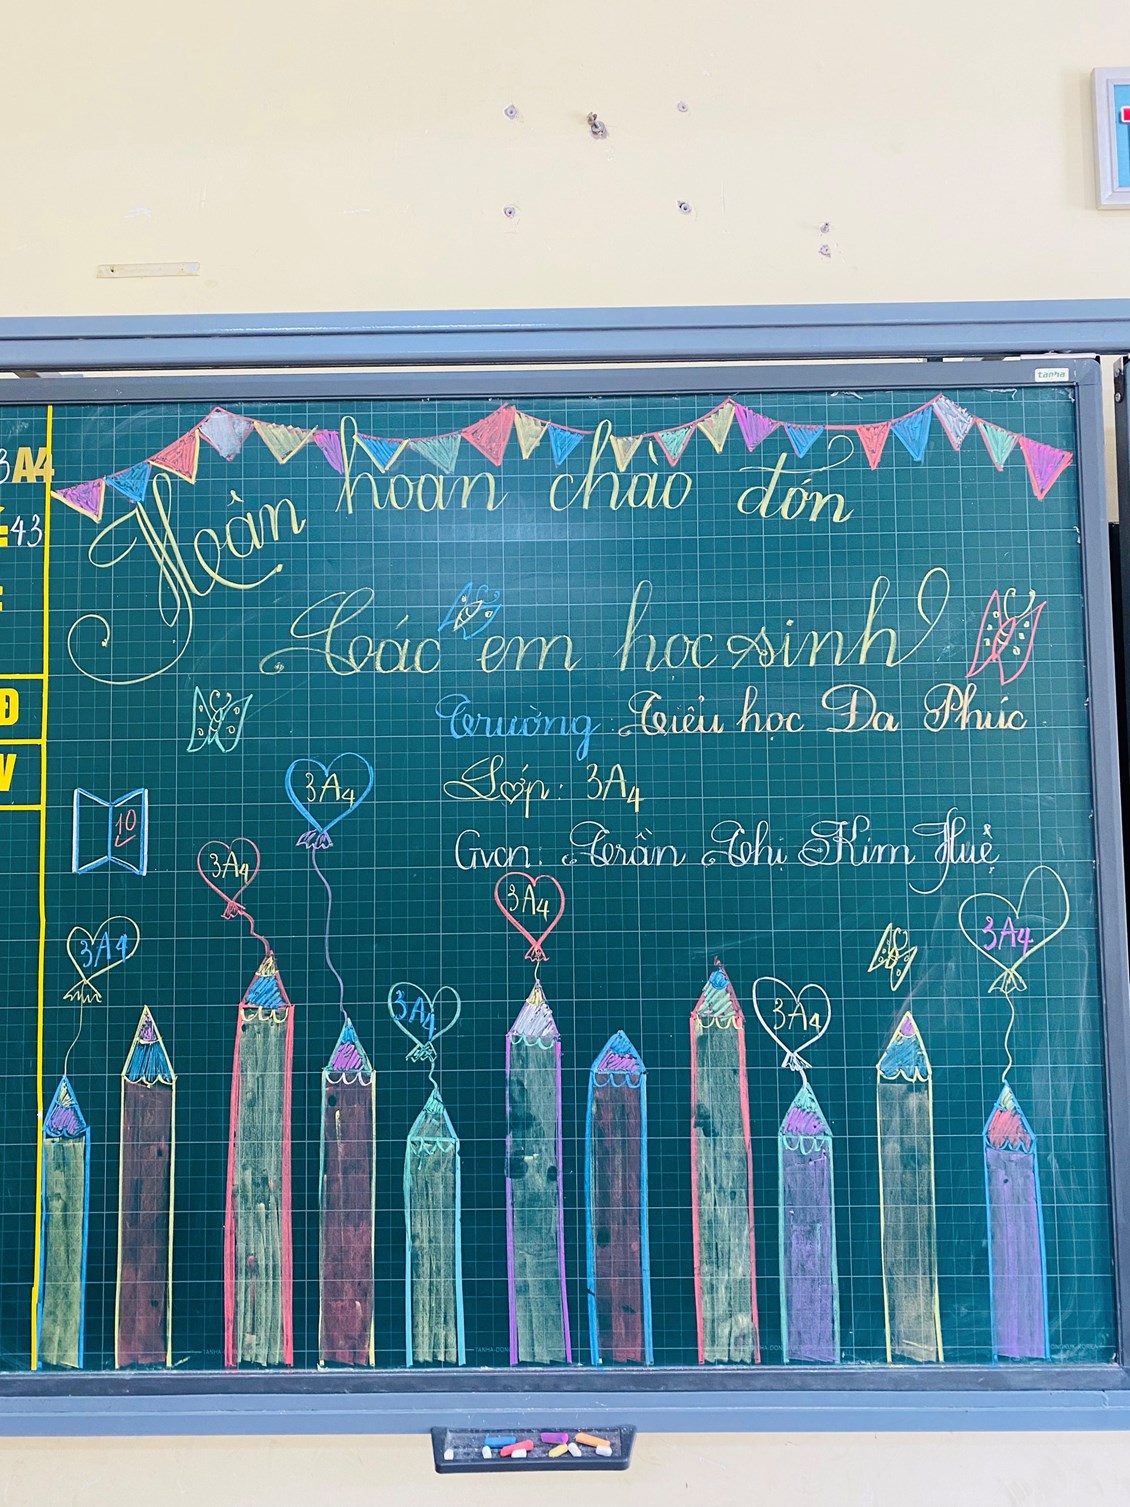 tanha
3A4
43
Đ
V
Hoàn hoan chào đón
Các em học sinh
Trường: Tiểu học Đa Phúc
Lớp: 3A4
Gvcn: Trần Thị Kim Huệ
10
3A4
3A4
3A4
3A4
3A4
3A4
3A4